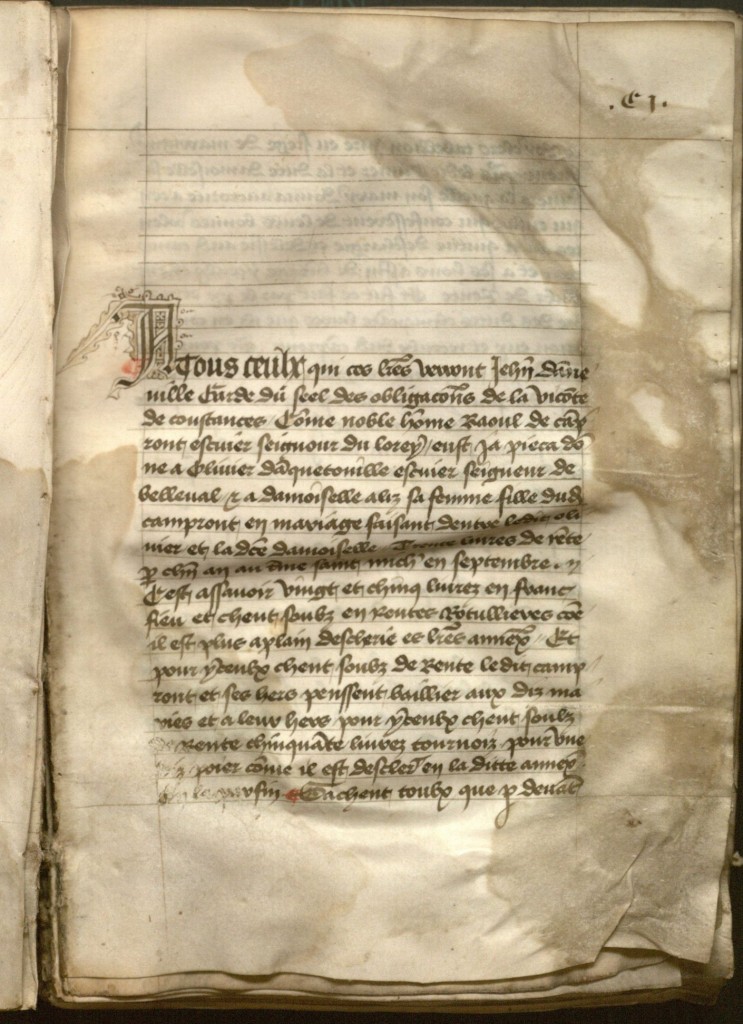 .C j.
A Tous ceulx qui ces lr̃es verront Jehñ dãne
uille Garde du seel des obligacoñs de la viconte
de constances Cõme noble hõme Raoul de cãp
ront escuier seigneur du lorey eust ja pieca dõ
ne a Olivier dãquetouille escuier seigneur de
belleval & a damoiselle aliz sa femme fille dud
campront en mariage faisant dentre ledit oli
uier et la dc̃e damoiselle Trente liures de rẽte
ꝑ chũ an au terme saint mich en septembre
Cest assavoir vingt et chinq liurez en franc
fieu et chent soubz en Rentes Roturieres cõe
il est plus aplain descherie es lr̃es annexz Et
pour yceulx chent soubz de Rente ledit camp
ront et ses hers peussent baillier aux diz ma
ries et a leur hers pour yceulx chent soubz
Rente chinquãte liurez tournoiz pour vne
foiz poier cõme il est descler en la ditte annexz
Sachent toulx que ꝑ devãt